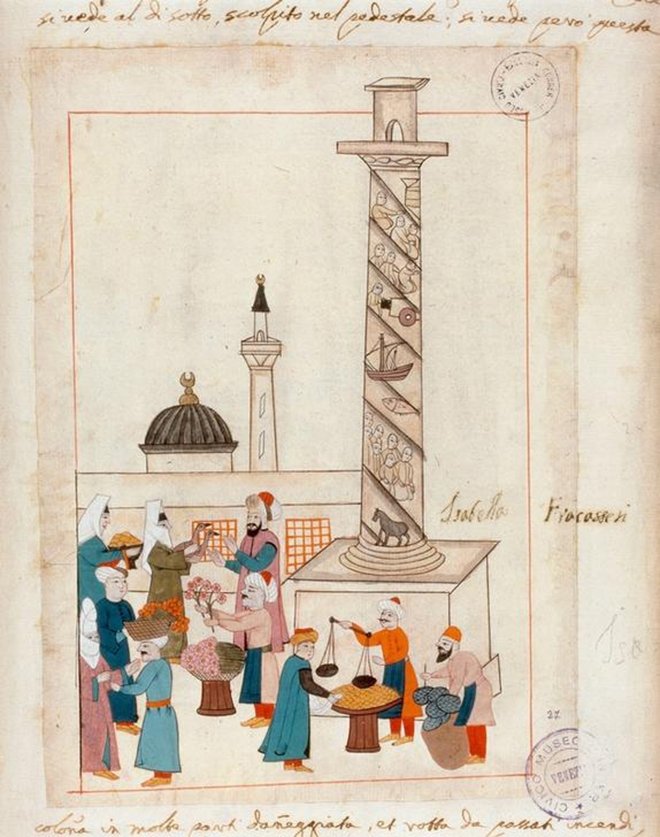 si vede al di sotto, scolpito nel pedestale; si vede però questa
CIVICO MUSEO CORRER
VENEZIA
Isabella Fracassen
Isa
27
CIVICO MUSEO
VENEZIA
colona in molte parti danneggiata, et rotta da passati incendi,